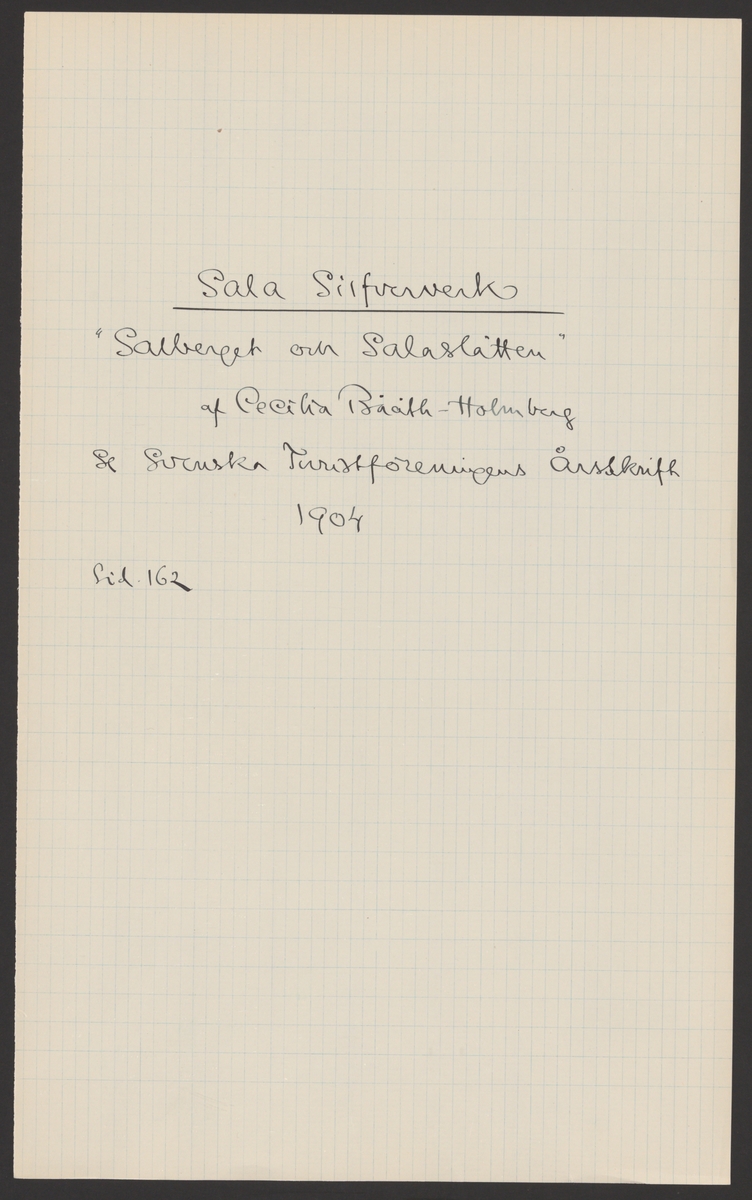 Sala Silfververk
"Salberget och Salaslätten"
af Cecilia Bååth-Holmberg
Se Svenska Turistföreningens Årsskrift
1904
Sid. 162